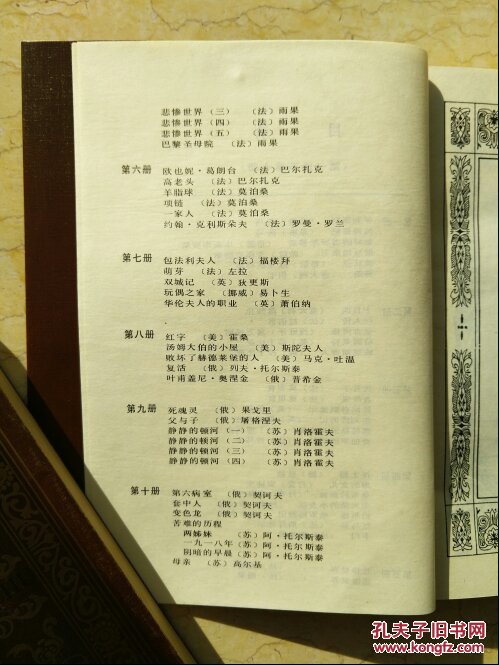 悲惨世界（三） （法）雨果
悲惨世界（四） （法）雨果
悲惨世界（五） （法）雨果
巴黎圣母院 （法）雨果
第六册 欧也妮·葛朗台 （法）巴尔扎克
高老头 （法）巴尔扎克
羊脂球 （法）莫泊桑
项链 （法）莫泊桑
一家人 （法）莫泊桑
约翰·克利斯朵夫 （法）罗曼·罗兰
第七册 包法利夫人 （法）福楼拜
萌芽 （法）左拉
双城记 （英）狄更斯
玩偶之家 （挪威）易卜生
华伦夫人的职业 （英）萧伯纳
第八册 红字 （美）霍桑
汤姆大伯的小屋 （美）斯陀夫人
败坏了赫德莱堡的人 （美）马克·吐温
复活 （俄）列夫·托尔斯泰
叶甫盖尼·奥涅金 （俄）普希金
第九册 死魂灵 （俄）果戈里
父与子 （俄）屠格涅夫
静静的顿河（一） （苏）肖洛霍夫
静静的顿河（二） （苏）肖洛霍夫
静静的顿河（三） （苏）肖洛霍夫
静静的顿河（四） （苏）肖洛霍夫
第十册 第六病室 （俄）契诃夫
套中人 （俄）契诃夫
变色龙 （俄）契诃夫
苦难的历程
两姊妹 （苏）阿·托尔斯泰
一九一八年（苏）阿·托尔斯泰
阴暗的早晨（苏）阿·托尔斯泰
母亲 （苏）高尔基
孔夫子旧书网
www.kongfz.com